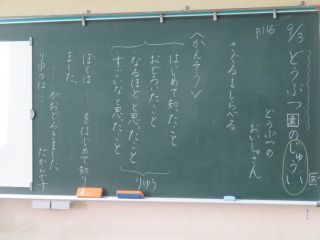 9/3 どうぶつ園のじゅうい
P116
医
どうぶつの
おいしゃさん
さぐる→しらべる
<かんそう>
はじめて知ったこと
おどろいたこと
なるほどと思ったこと
すごいなと思ったこと
りゆう
ぼくは…をはじめて知り
ました。
…がおどろきました。
りゆうは たからです